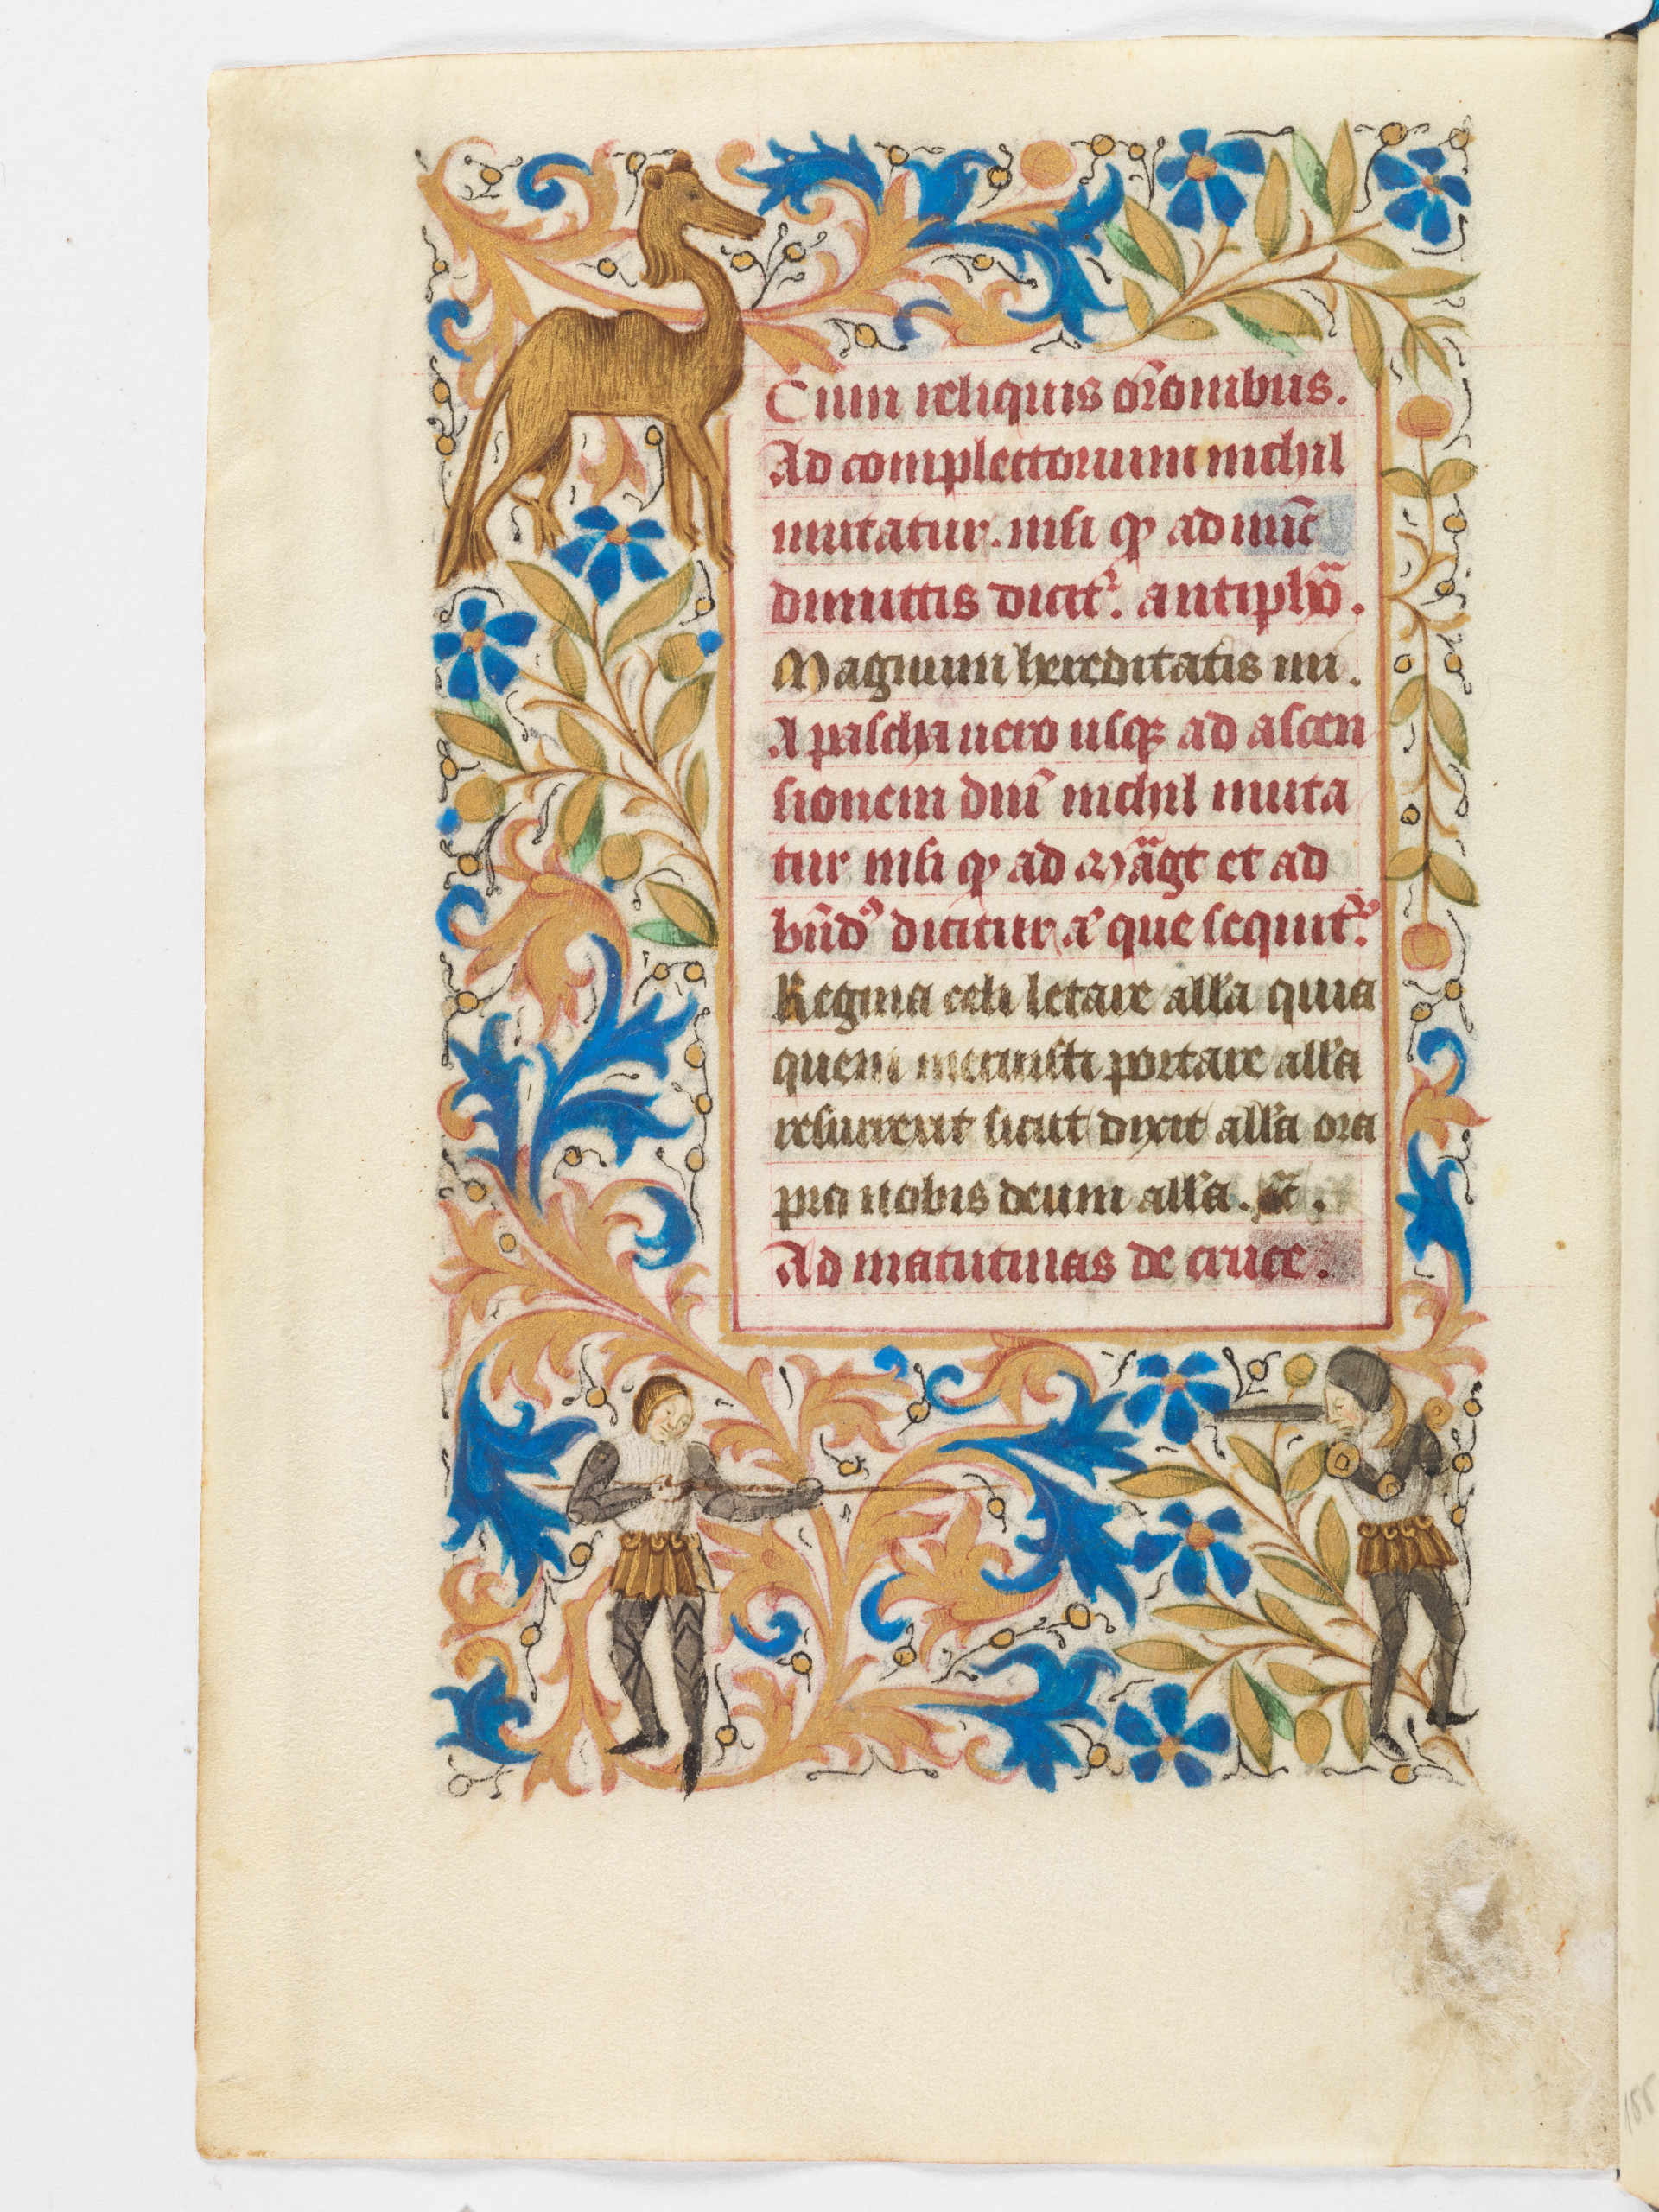 Cum reliquis or̃onibus.
Ad complectorium nichil
mutatur. nisi qꝫ ad nũc
dimittis dicit᷑. antiphõ.
Magnum hereditatis mi.
A pascha uero usqꝫ ad ascen
sionem dñi nichil muta
tur nisi qꝫ ad Mãgt et ad
bñdꝰ dicitur ã que sequit᷑.
Regina celi letare all'a quia
quem meruisti portare all'a
resurrexit sicut dixit all'a ora
pro nobis deum all'a.
Ad matutinas de cruce.
155